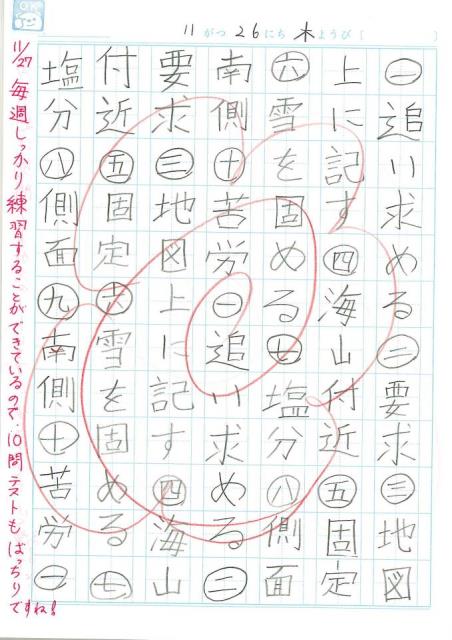 OK
11がつ26にち木ようび〔 〕
㊀追い求める㊁要求㊂地図
上に記す㊃海山付近㊄固定
㊅雪を固める㊆塩分㊇側面
南側㊉苦労㊀追い求める㊁
要求㊂地図上に記す㊃海山
付近㊄固定㊅雪を固める㊆
塩分㊇側面㊈南側㊉苦労㊀
11/27 毎週しっかり練習することができているので、10問テストもばっちりですね!